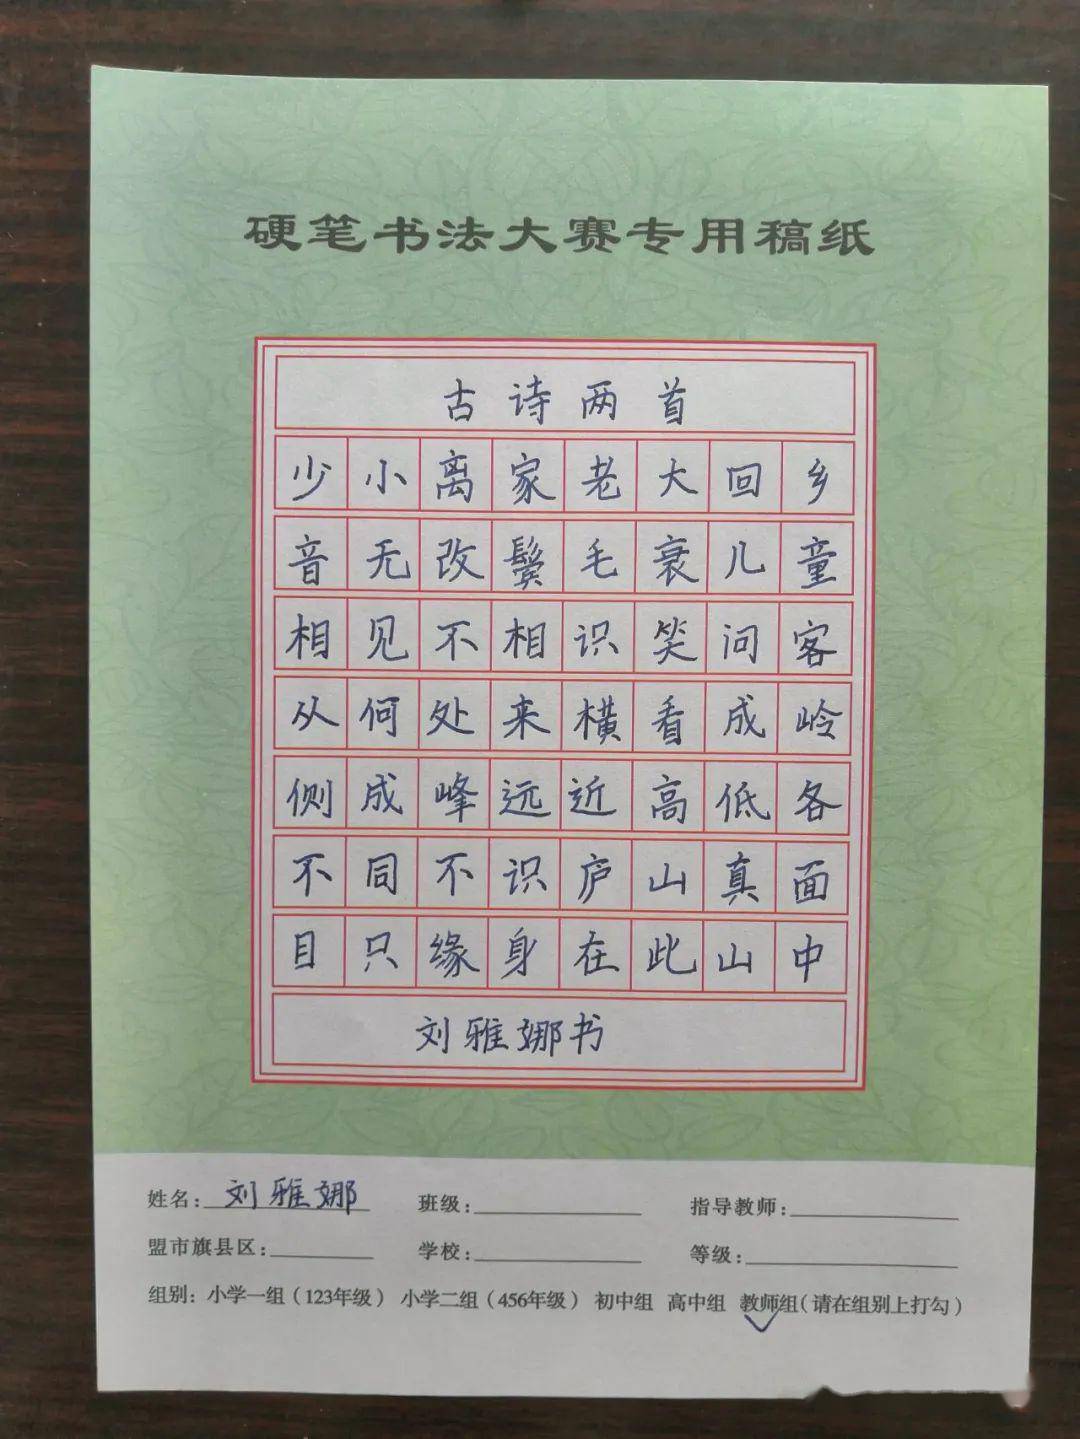 硬笔书法大赛专用稿纸
古诗两首
少小离家老大回乡
音无改鬓毛衰儿童
相见不相识笑问客
从何处来横看成岭
侧成峰远近高低各
不同不识庐山真面
目只缘身在此山中
刘雅娜书
姓名：刘雅娜 班级： 指导教师：
盟市旗县区： 学校： 等级：
组别：小学一组（123年级） 小学二组（456年级） 初中组 高中组 教师组（请在组别上打勾）